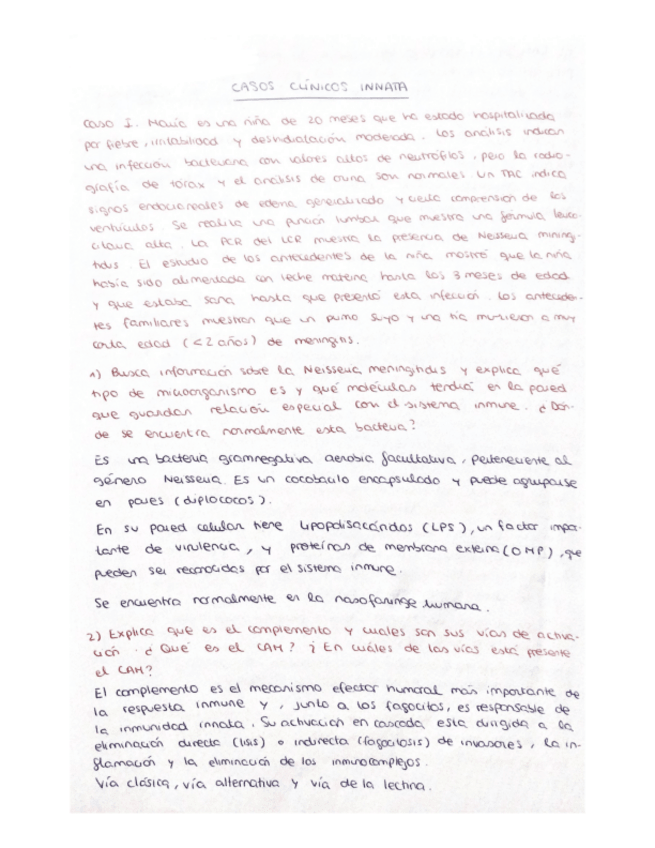 CASOS CLÍNICOS INNATA
Caso I. María es una niña de 20 meses que ha estado hospitalizada
por fiebre, irritabilidad y deshidratación moderada. Los análisis indican
una infección bacteriana con valores altos de neutrófilos, pero la radio-
grafía de tórax y el análisis de orina son normales. Un TAC indica
signos endocraneales de edema generalizado y cierta compresión de los
ventrículos. Se realiza una punción lumbar que muestra una fórmula leuco-
citaria alta. La PCR del LCR muestra la presencia de Neisseria mining-
tidus. El estudio de los antecedentes de la niña mostró que la niña
había sido alimentada con leche materna hasta los 3 meses de edad
y que estaba sana hasta que presentó esta infección. Los anteceden-
tes familiares muestran que un primo suyo y una tía murieron a muy
corta edad (<2 años) de meningitis.
1) Busca información sobre la Neisseria meningitidus y explica qué
tipo de microorganismo es y qué moléculas tendrá en la pared
que guardan relación especial con el sistema inmune. ¿Dón-
de se encuentra normalmente esta bacteria?
Es una bacteria gramnegativa aerobia facultativa, perteneciente al
género Neisseria. Es un cocobacilo encapsulado y puede agruparse
en pares (diplococos).
En su pared celular tiene lipopolisacáridos (LPS), un factor impor-
tante de virulencia, y proteínas de membrana externa (OMP), que
pueden ser reconocidas por el sistema inmune.
Se encuentra normalmente en la nasofaringe humana.
2) Explica que es el complemento y cuales son sus vías de activa-
ción. ¿Qué es el CAM? ¿En cuáles de las vías está presente
el CAM?
El complemento es el mecanismo efector humoral más importante de
la respuesta inmune y, junto a los fagocitos, es responsable de
la inmunidad innata. Su activación en cascada esta dirigida a la
eliminación directa (lisis) o indirecta (fagocitosis) de invasores, la in-
flamación y la eliminación de los inmunocomplejos.
Vía clásica, vía alternativa y vía de la lectina.